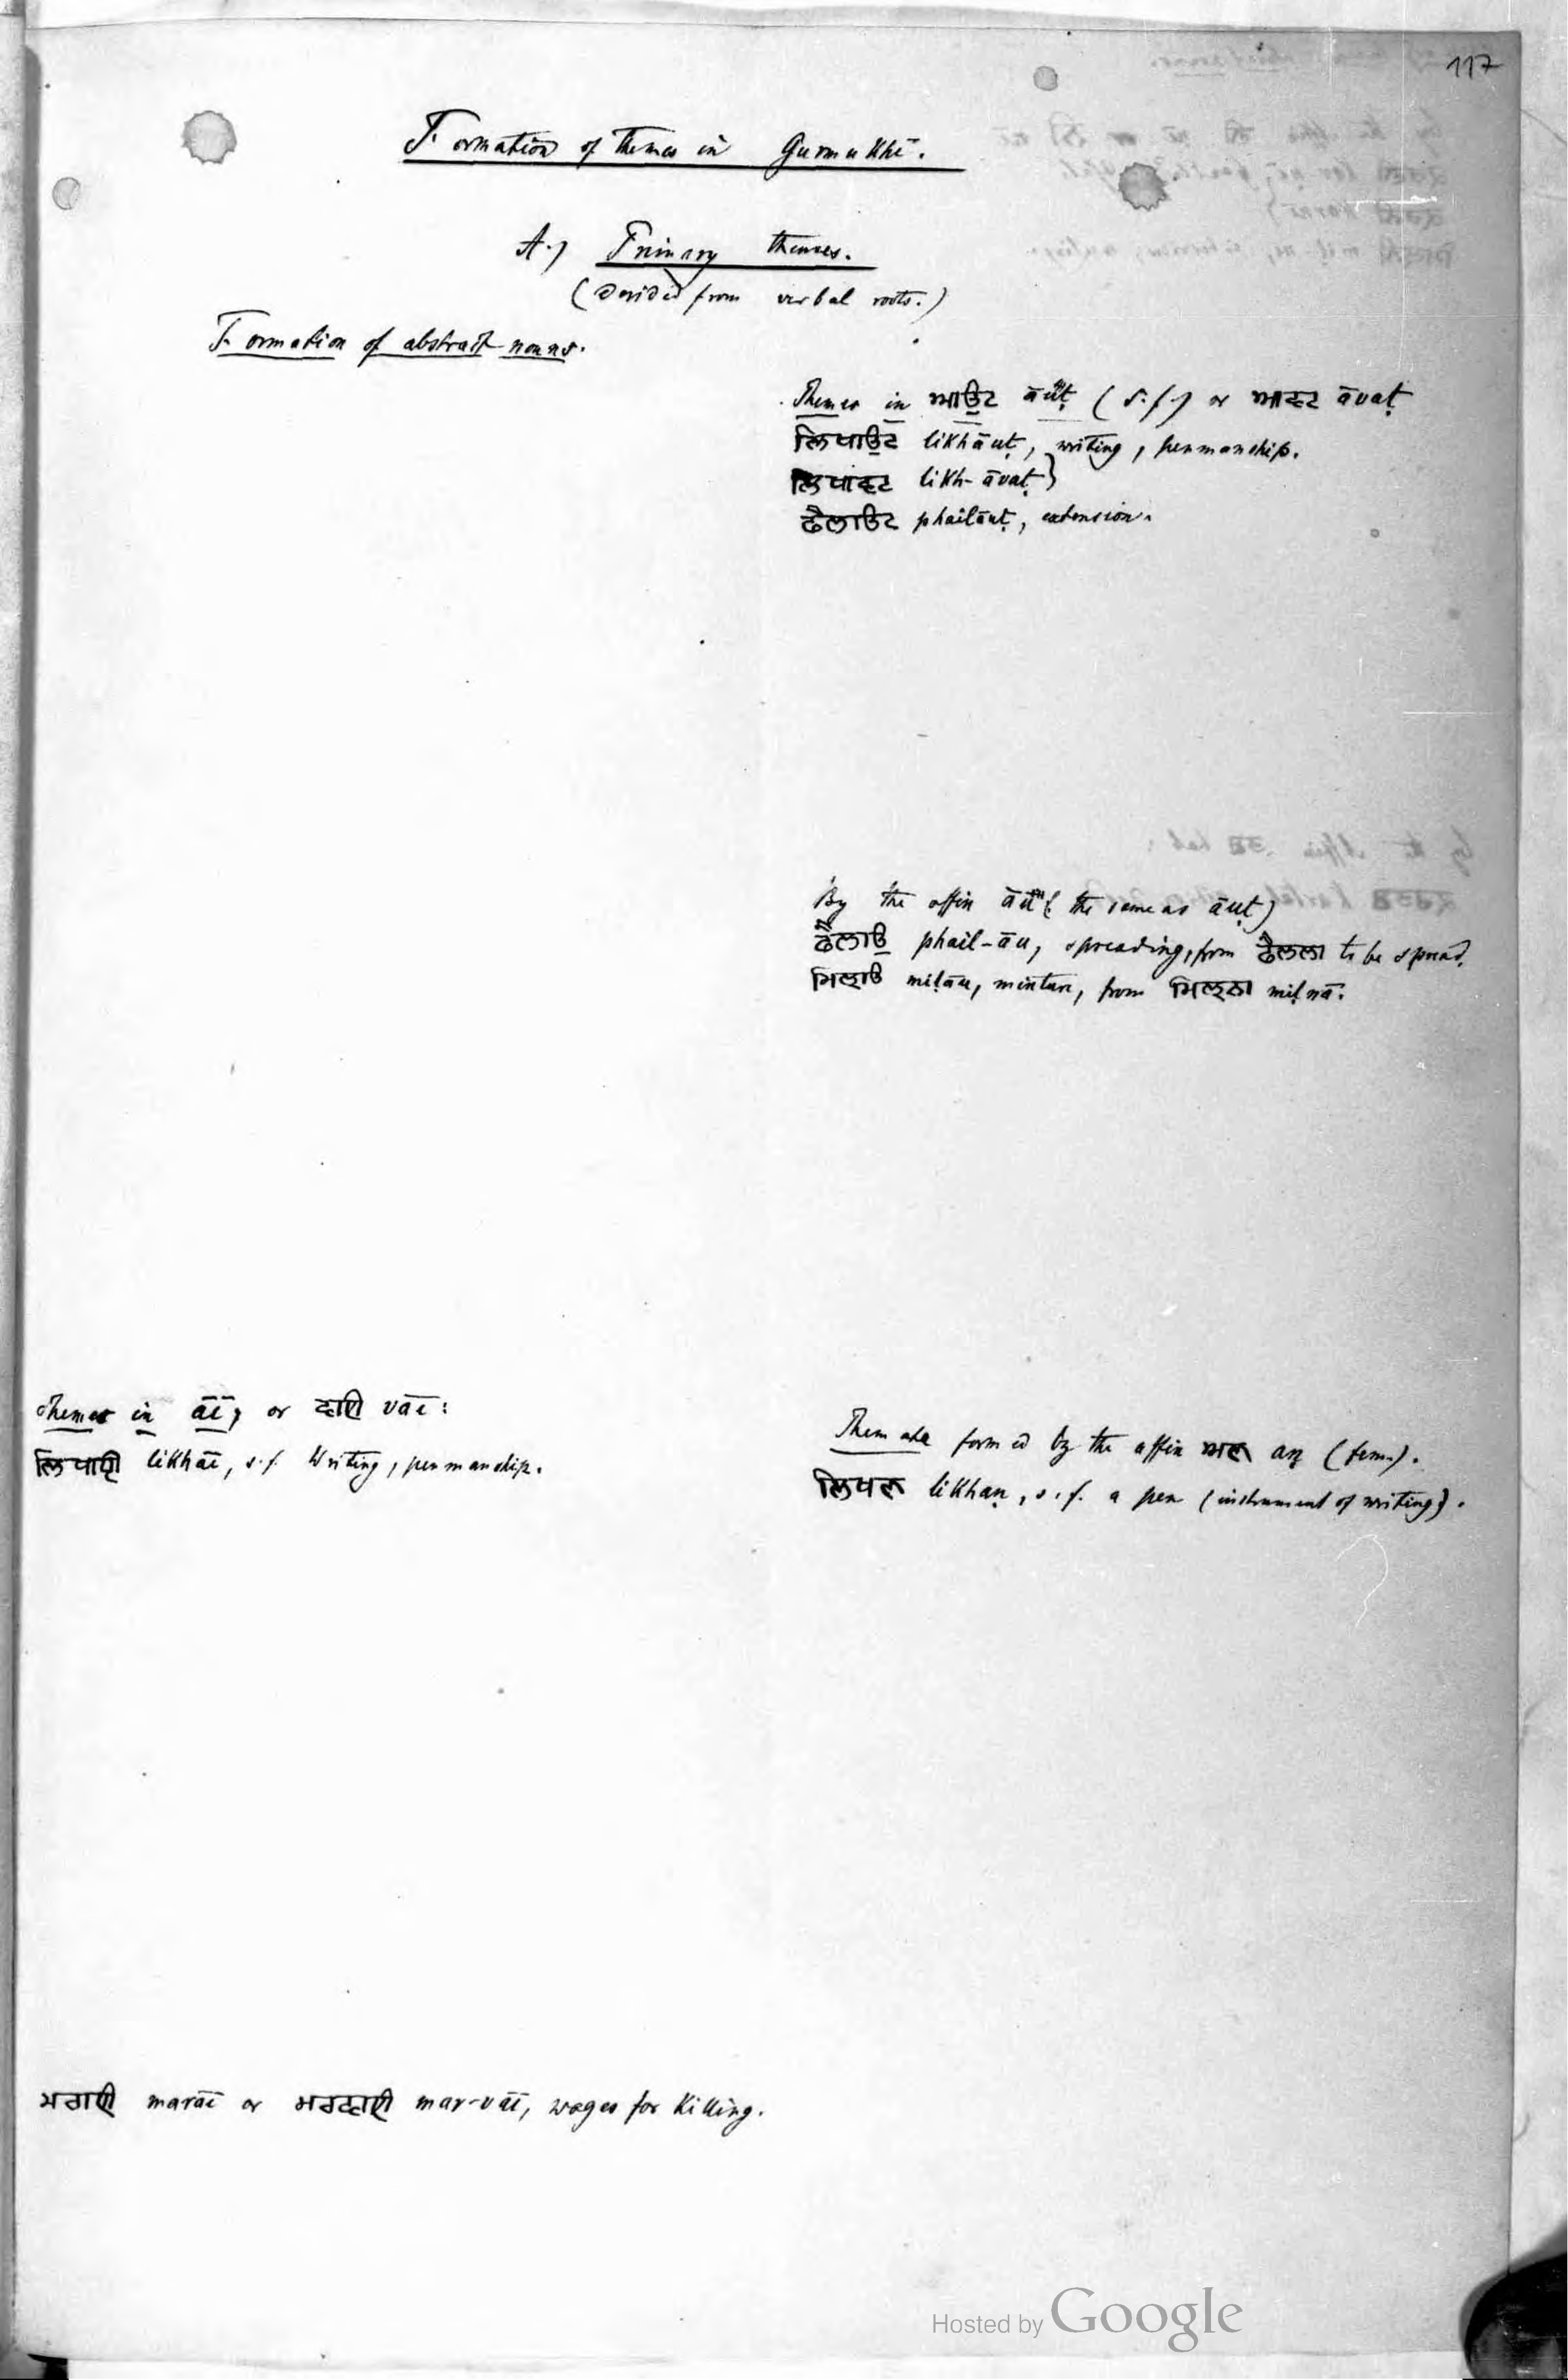 117
Formation of themes in Gurmukhī.
A.) Primary themes.
(Derived from verbal roots.)
Formation of abstract nouns.
Themes in ਆਉਟ āuṭ (s.f.) or ਆਵਟ āvaṭ
ਲਿਖਾਉਟ likhāuṭ, writing, penmanship.
ਲਿਖਾਵਟ likh-āvaṭ}
ਫੈਲਾਉਟ phailāuṭ, extension.
By the affix āu (the same as āuṭ)
ਫੈਲਾਉ phail-āu, spreading, from ਫੈਲਣਾ to be spread.
ਮਿਲਾਉ miḷāu, mixture, from ਮਿਲਨਾ miḷnā.
Themes in āī, or ਵਾਈ vāī:
ਲਿਖਾਈ likhāī, s.f. Writing, penmanship.
Them are formed by the affix ਅਣ aṇ (fem.).
ਲਿਖਣ likhaṇ, s.f. a pen (instrument of writing).
ਮਰਾਈ marāī or ਮਰਵਾਈ mar-vāī, wages for killing.
Hosted by Google